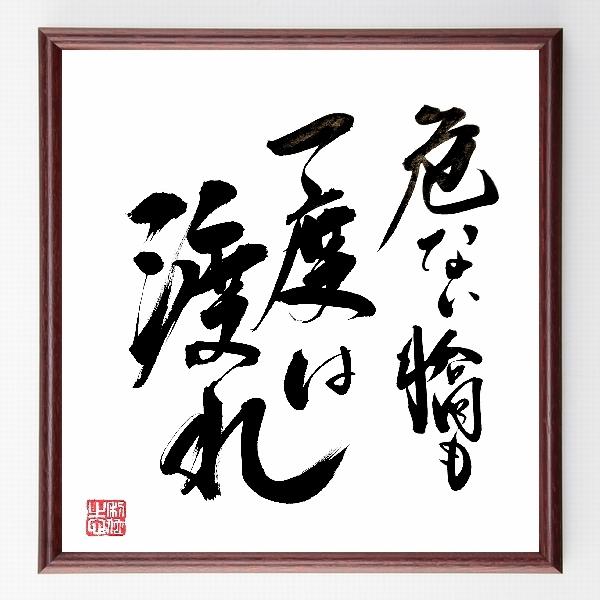 危ない橋も
一度は
渡れ